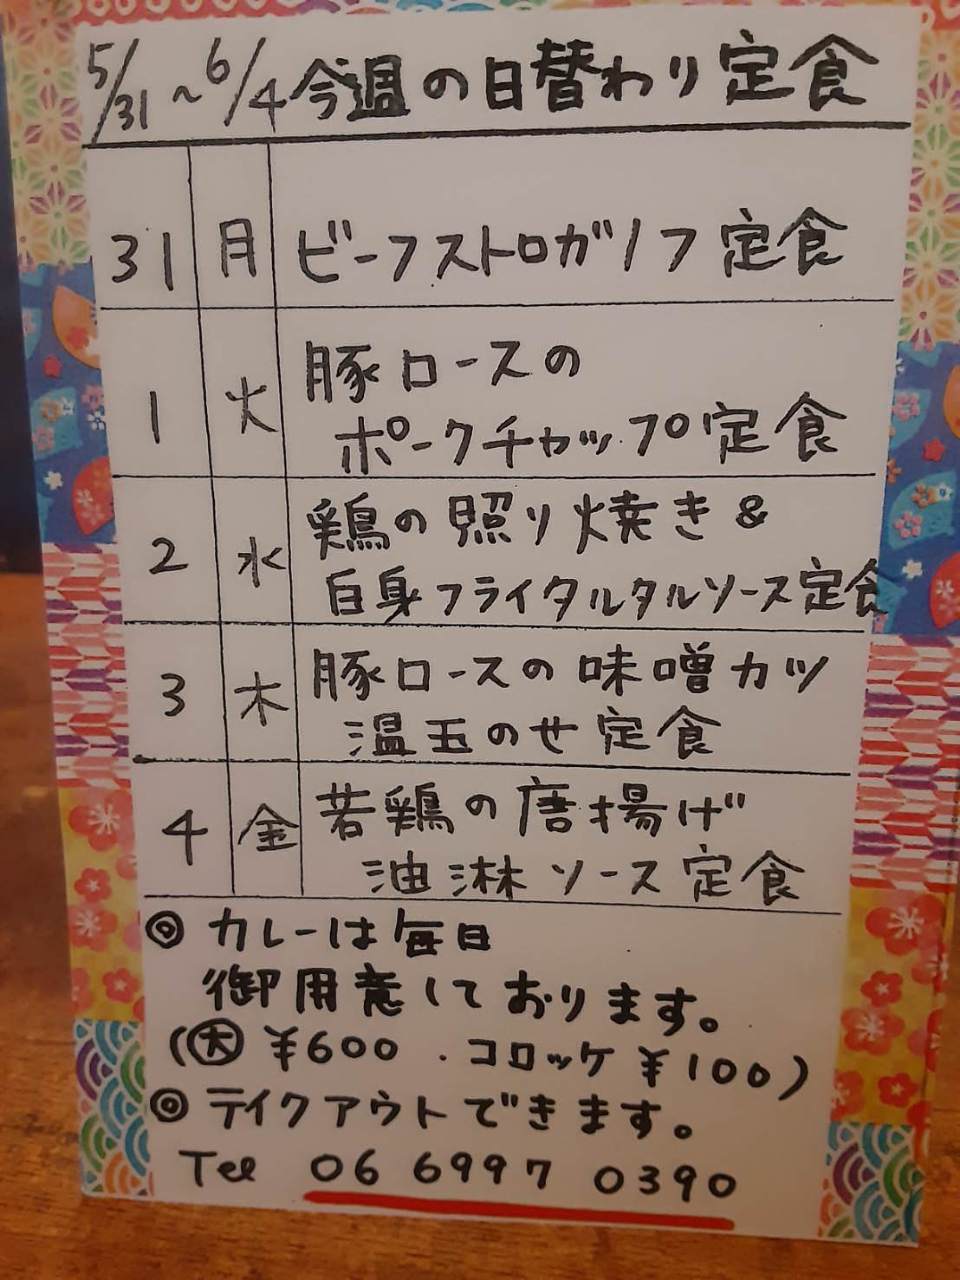 5/31~6/4 今週の日替わり定食
31 月 ビーフストロガノフ定食
1 火 豚ロースの
ポークチャップ定食
2 水 鶏の照り焼き&
白身フライタルタルソース定食
3 木 豚ロースの味噌カツ
温玉のせ定食
4 金 若鶏の唐揚げ
油淋ソース定食
◎ カレーは毎日
御用意しております。
(大 ¥600 . コロッケ ¥100)
◎ テイクアウトできます。
Tel 06 6997 0390